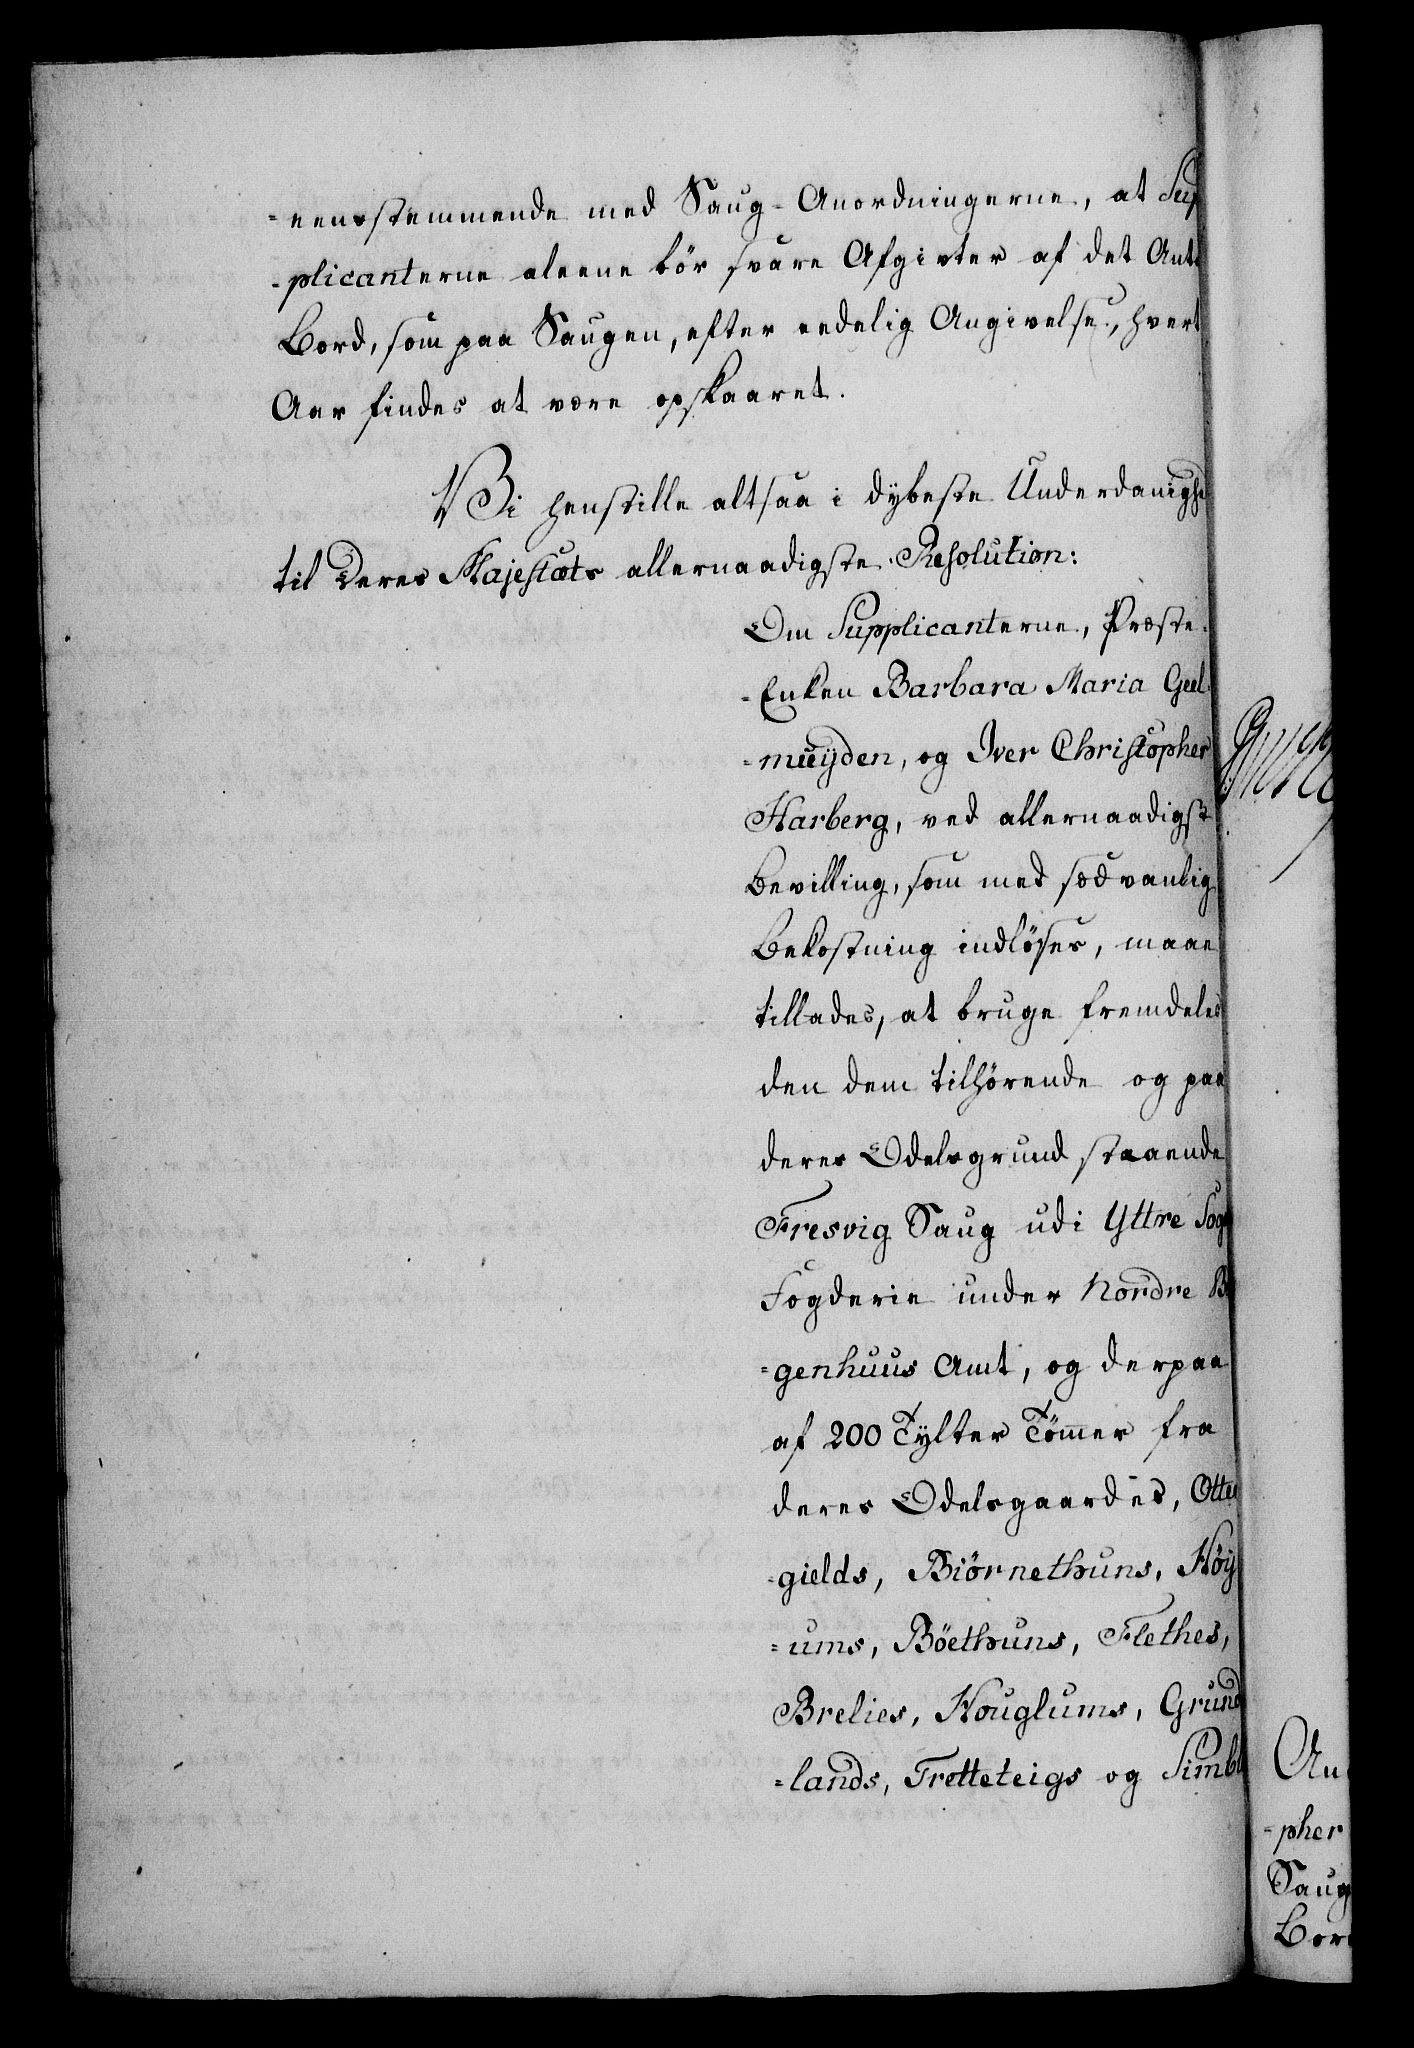 -eensstemmende med Saug-Anordningerne, at Sup
-plicanterne aleene bör svare Afgivter af det Ant
Bord, som paa Saugen, efter eedelig Angivelse, hvert
Aar findes at være opskaaret.
Vi henstille altsaa i dybeste Underdanigh
til Deres Majestæts allernaadigste Resolution:
Om Supplicanterne, Præste-
-Enken Barbara Maria Geel-
-muijden, og Iver Christopher
Harberg, ved allernaadigst
Bevilling, som med sædvanlig
Bekostning indlöses, maae
tillades, at bruge fremdeles
den dem tilhörende og paa
deres Odelsgrund staaende
Fresvig Saug udi Yttre Sogn
Fogderie under Nordre B
=genhuus Amt, og derpaa
af 200 Tylter Tömmer fra
deres Odelsgaardes, Otte
-gields, Biörnethuns, Höy
=ums, Böethuns, Flethes,
Brelies, Houglums, Grund
=lands, Tretteteigs og Simbl
An
-pher
Saug
Bor